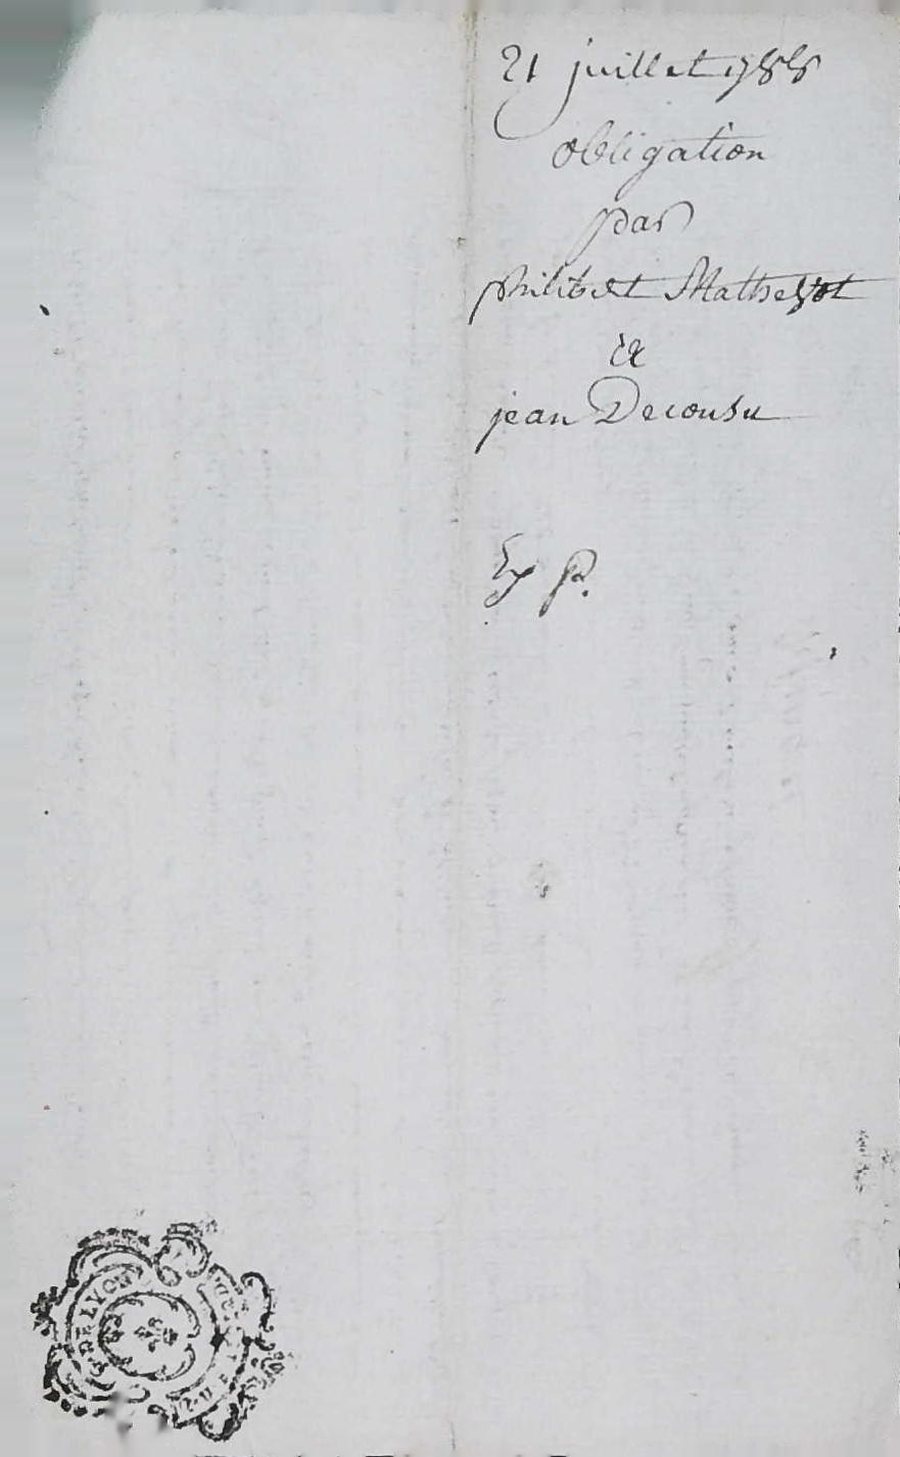 21 juillet 1788
obligation
par
philibert Mathey
&
jean Decousu
Ex P.
G. DE LYON